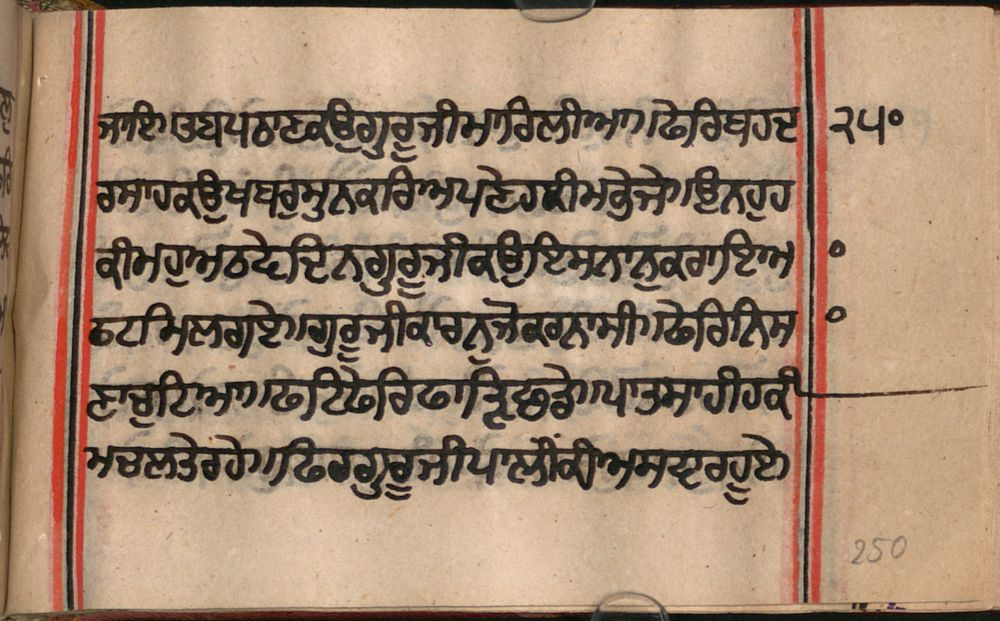 ਜਾਇ। ਤਬ ਪਠਾਣ ਕਉ ਗੁਰੂ ਜੀ ਮਾਰਿ ਲੀਆ। ਫੇਰਿ ਬਹਦ ੨੫੦
ਰਸਾਹ ਕਉ ਖਬਰੁ ਸੁਨ ਕਰਿ ਅਪਣੇ ਹਕੀਮ ਭੇਜੇ। ਉਨ ਹੁਹ
ਕੀਮਹੁ ਅਠਵੇ ਦਿਨ ਗੁਰੂ ਜੀ ਕਉ ਇਸਨਾਨੁ ਕਰਾਇਆ
ਫਟ ਮਿਲ ਗਏ। ਗੁਰੂ ਜੀ ਕਾਰਨੁ ਜੋ ਕਰਨਾ ਸੀ। ਫੇਰਿ ਨਿਸ
ਣਾ ਚੁਟਿਆ। ਫਟਿ ਫੇਰਿ ਪਾਤਸਾਹੀ ਹਕੀ
ਮ ਚਲਤੇ ਰਹੇ। ਫਿਰ ਗੁਰੂ ਜੀ ਪਾਲਕੀ ਅਸਵਾਰ ਹੂਏ
250